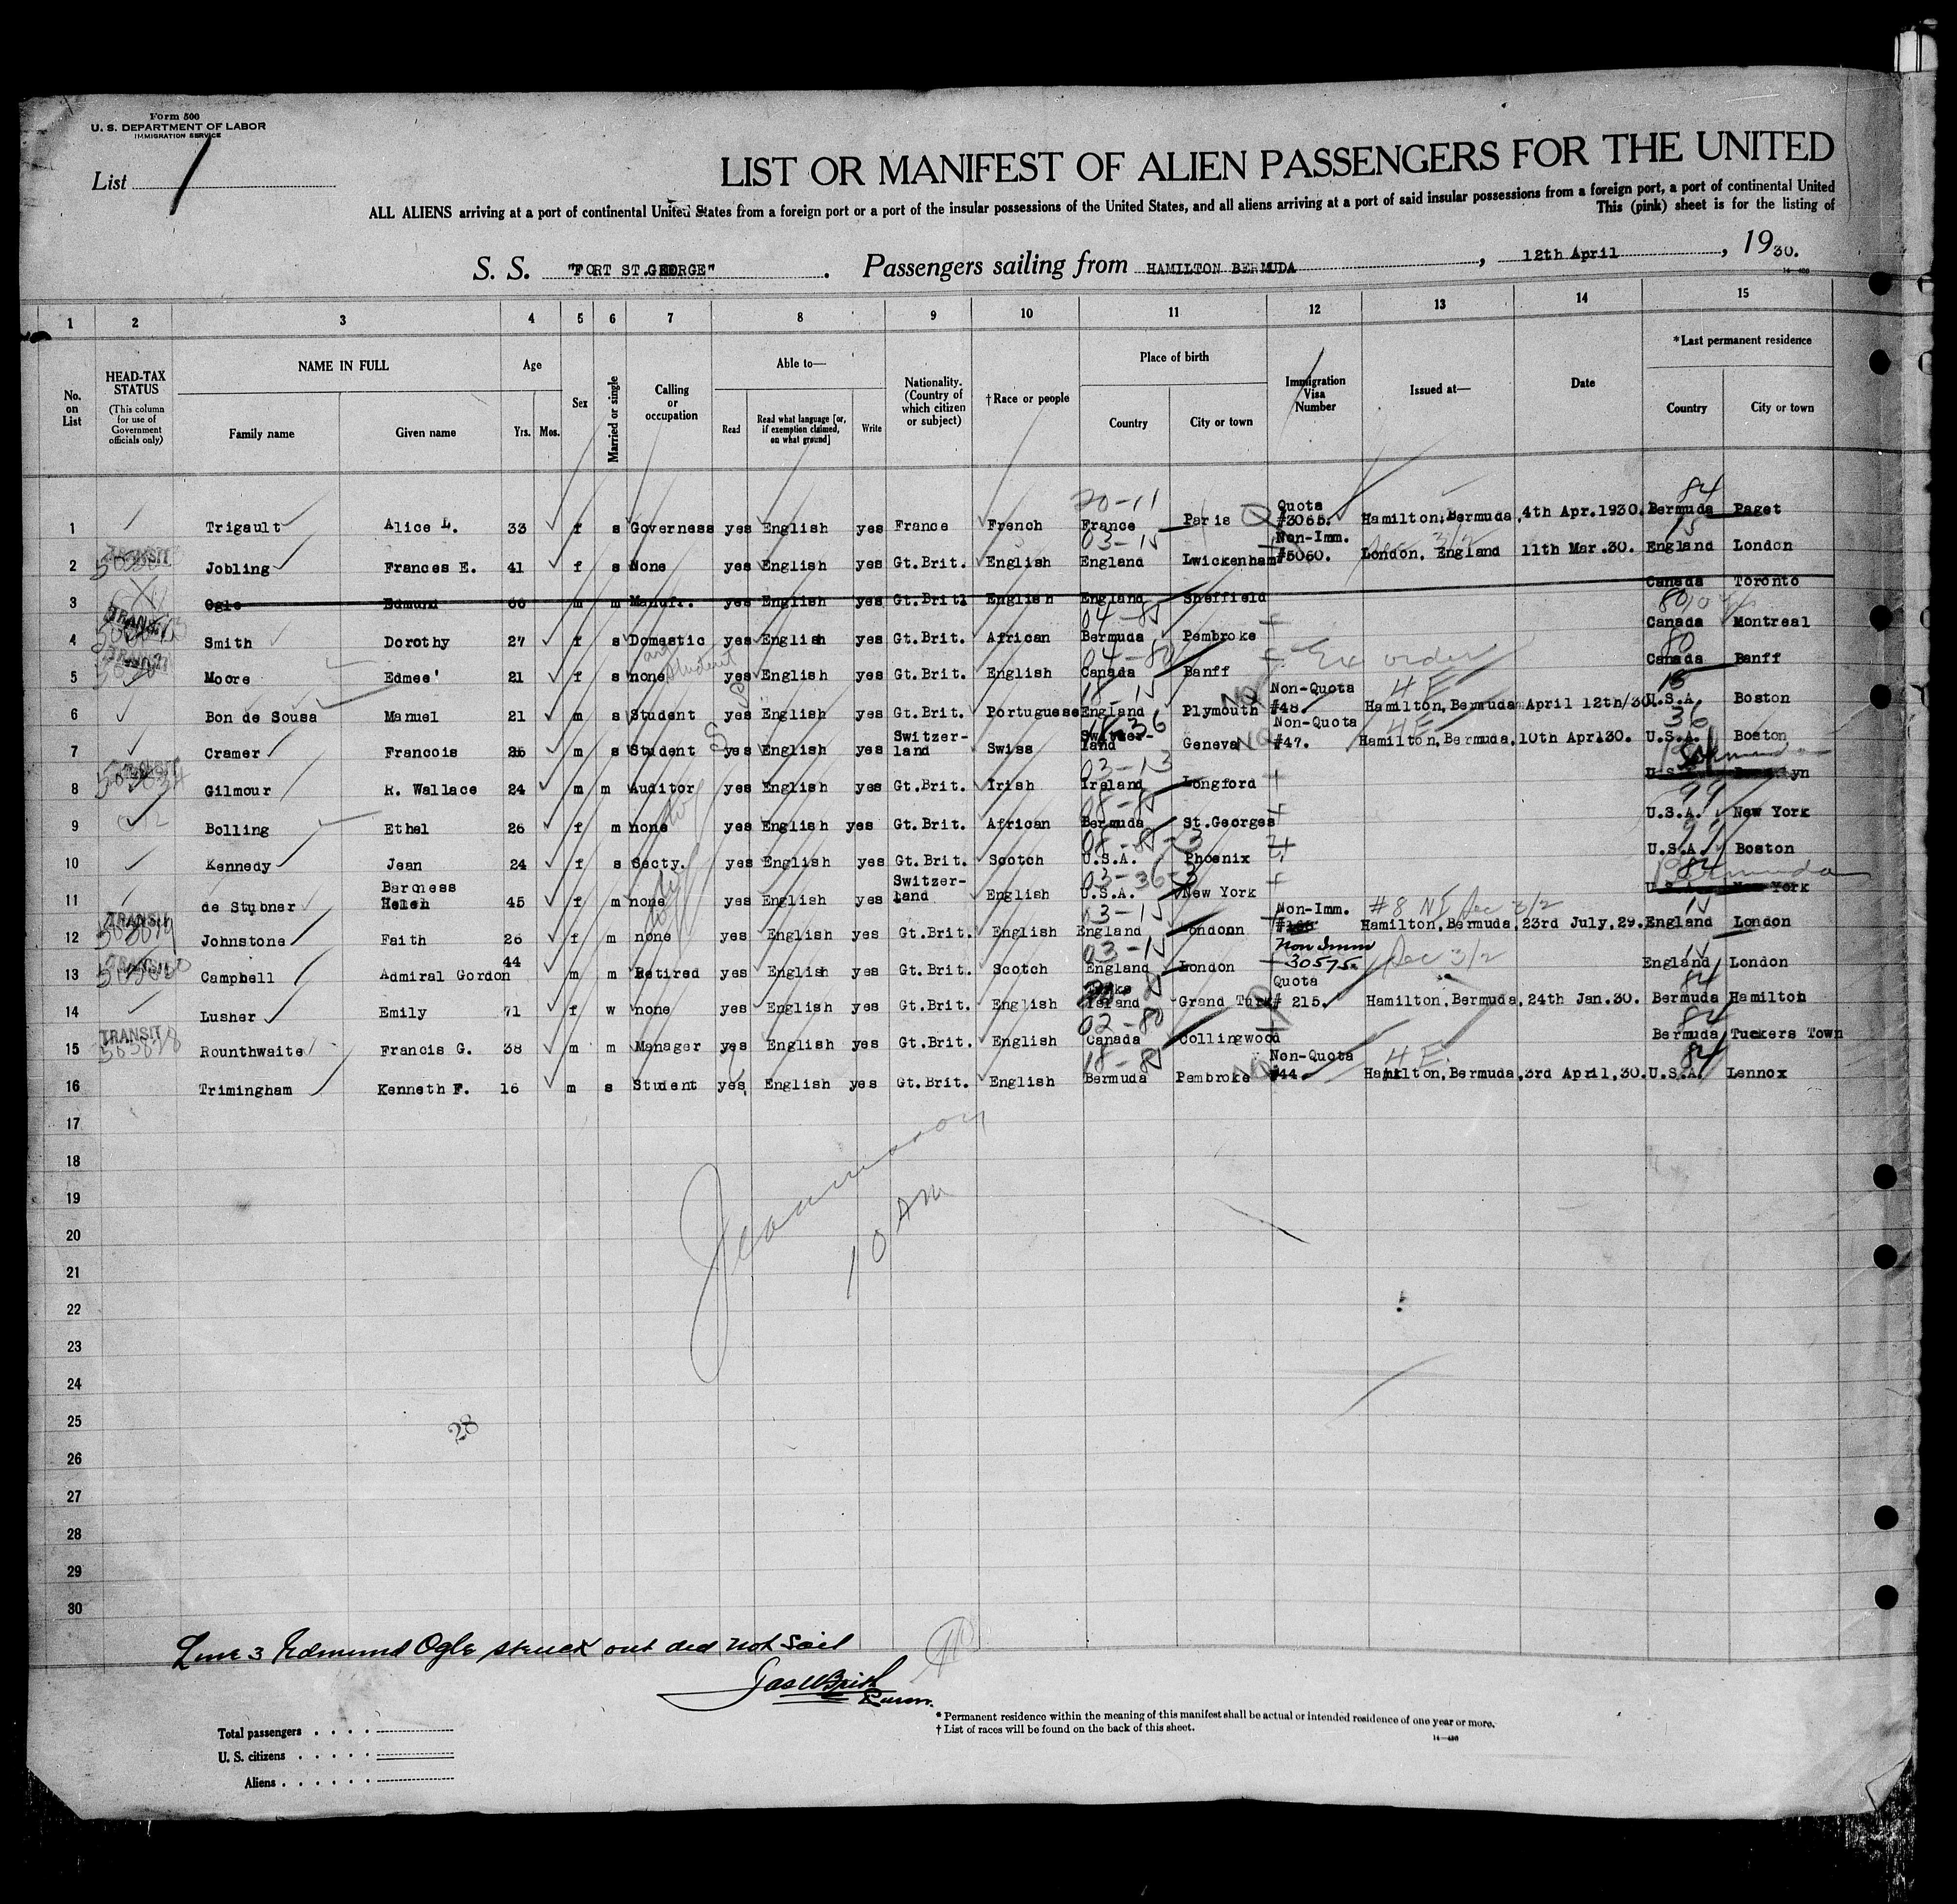 Form 500
U. S. DEPARTMENT OF LABOR
IMMIGRATION SERVICE
List 1
LIST OR MANIFEST OF ALIEN PASSENGERS FOR THE UNITED
ALL ALIENS arriving at a port of continental United States from a foreign port or a port of the insular possessions of the United States, and all aliens arriving at a port of said insular possessions from a foreign port, a port of continental United
This (pink) sheet is for the listing of
S. S. "FORT ST.GEORGE". Passengers sailing from HAMILTON BERMUDA, 12th April, 1930.
14—430
1 2 3 4 5 6 7 8 9 10 11 12 13 14 15
No. on List
HEAD-TAX STATUS
(This column for use of Government officials only)
NAME IN FULL
Family name Given name
Age
Yrs. Mos.
Sex
Married or single
Calling or occupation
Able to—
Read Read what language [or, if exemption claimed, on what ground] Write
Nationality. (Country of which citizen or subject)
†Race or people
Place of birth
Country City or town
Immigration Visa Number
Issued at—
Date
*Last permanent residence
Country City or town
20-11 Quota 84
1 Trigault Alice L. 33 f s Governess yes English yes France French France Paris Q #3065. Hamilton, Bermuda, 4th Apr.1930. Bermuda Paget
TRANSIT 03-15 Non-Imm. Sec 3/2 15
2 Jobling Frances E. 41 f s None yes English yes Gt.Brit. English England Lwickenham #5060. London, England 11th Mar.30. England London
3 Ogle Edmund 66 m m Manufr. yes English yes Gt.Brit. English England Sheffield Canada Toronto
TRANSIT 04-85 80
4 Smith Dorothy 27 f s Domestic yes English yes Gt.Brit. African Bermuda Pembroke Canada Montreal
TRANSIT and Student 04-80 Ex order 80
5 Moore Edmee' 21 f s none yes English yes Gt.Brit. English Canada Banff Canada Banff
18-15 NQ Non-Quota 4 E 15
6 Bon de Sousa Manuel 21 m s Student yes English yes Gt.Brit. Portuguese England Plymouth #48. Hamilton, Bermuda April 12th/30. U.S.A. Boston
18-36 NQ Non-Quota 4 E 36
7 Cramer Francois 26 m s Student yes English yes Switzer-land Swiss Switzer-land Geneva #47. Hamilton, Bermuda, 10th Apr130. U.S.A. Boston
TRANSIT 03-13 Bermuda
8 Gilmour R. Wallace 24 m m Auditor yes English yes Gt.Brit. Irish Ireland Longford U.S.A. Brooklyn
08-85 99
9 Bolling Ethel 26 f m none yes English yes Gt.Brit. African Bermuda St.Georges U.S.A. New York
99
10 Kennedy Jean 24 f s Secty. yes English yes Gt.Brit. Scotch U.S.A. Phoenix U.S.A. Boston
03-36-3 Bermuda 84
11 de Stubner Baroness Helen 45 f m none yes English yes Switzer-land English U.S.A. New York U.S.A. New York
TRANSIT 03-15 Non-Imm. #8 NI Sec 3/2 15
12 Johnstone Faith 26 f m none yes English yes Gt.Brit. English England London Hamilton, Bermuda, 23rd July,29. England London
TRANSIT 03-15 Non Imm Sec 3/2 15
13 Campbell Admiral Gordon 44 m m Retired yes English yes Gt.Brit. Scotch England London 30575 England London
Quota 84
14 Lusher Emily 71 f w none yes English yes Gt.Brit. English Turks Island Grand Turk # 215. Hamilton, Bermuda, 24th Jan.30. Bermuda Hamilton
TRANSIT 02-80 84
15 Rounthwaite Francis G. 38 m m Manager yes English yes Gt.Brit. English Canada Collingwood Bermuda Tuckers Town
18-85 NQ Non-Quota 4 E. 84
16 Trimingham Kenneth F. 16 m s Student yes English yes Gt.Brit. English Bermuda Pembroke #44 Hamilton, Bermuda, 3rd April,30. U.S.A. Lennox
17
18
19
20
10 AM
21
22
23
24
25
28
26
27
28
29
30
Line 3 Edmund Ogle struck out did not sail
Purser.
*Permanent residence within the meaning of this manifest shall be actual or intended residence of one year or more.
†List of races will be found on the back of this sheet.
14—430
Total passengers
U. S. citizens
Aliens